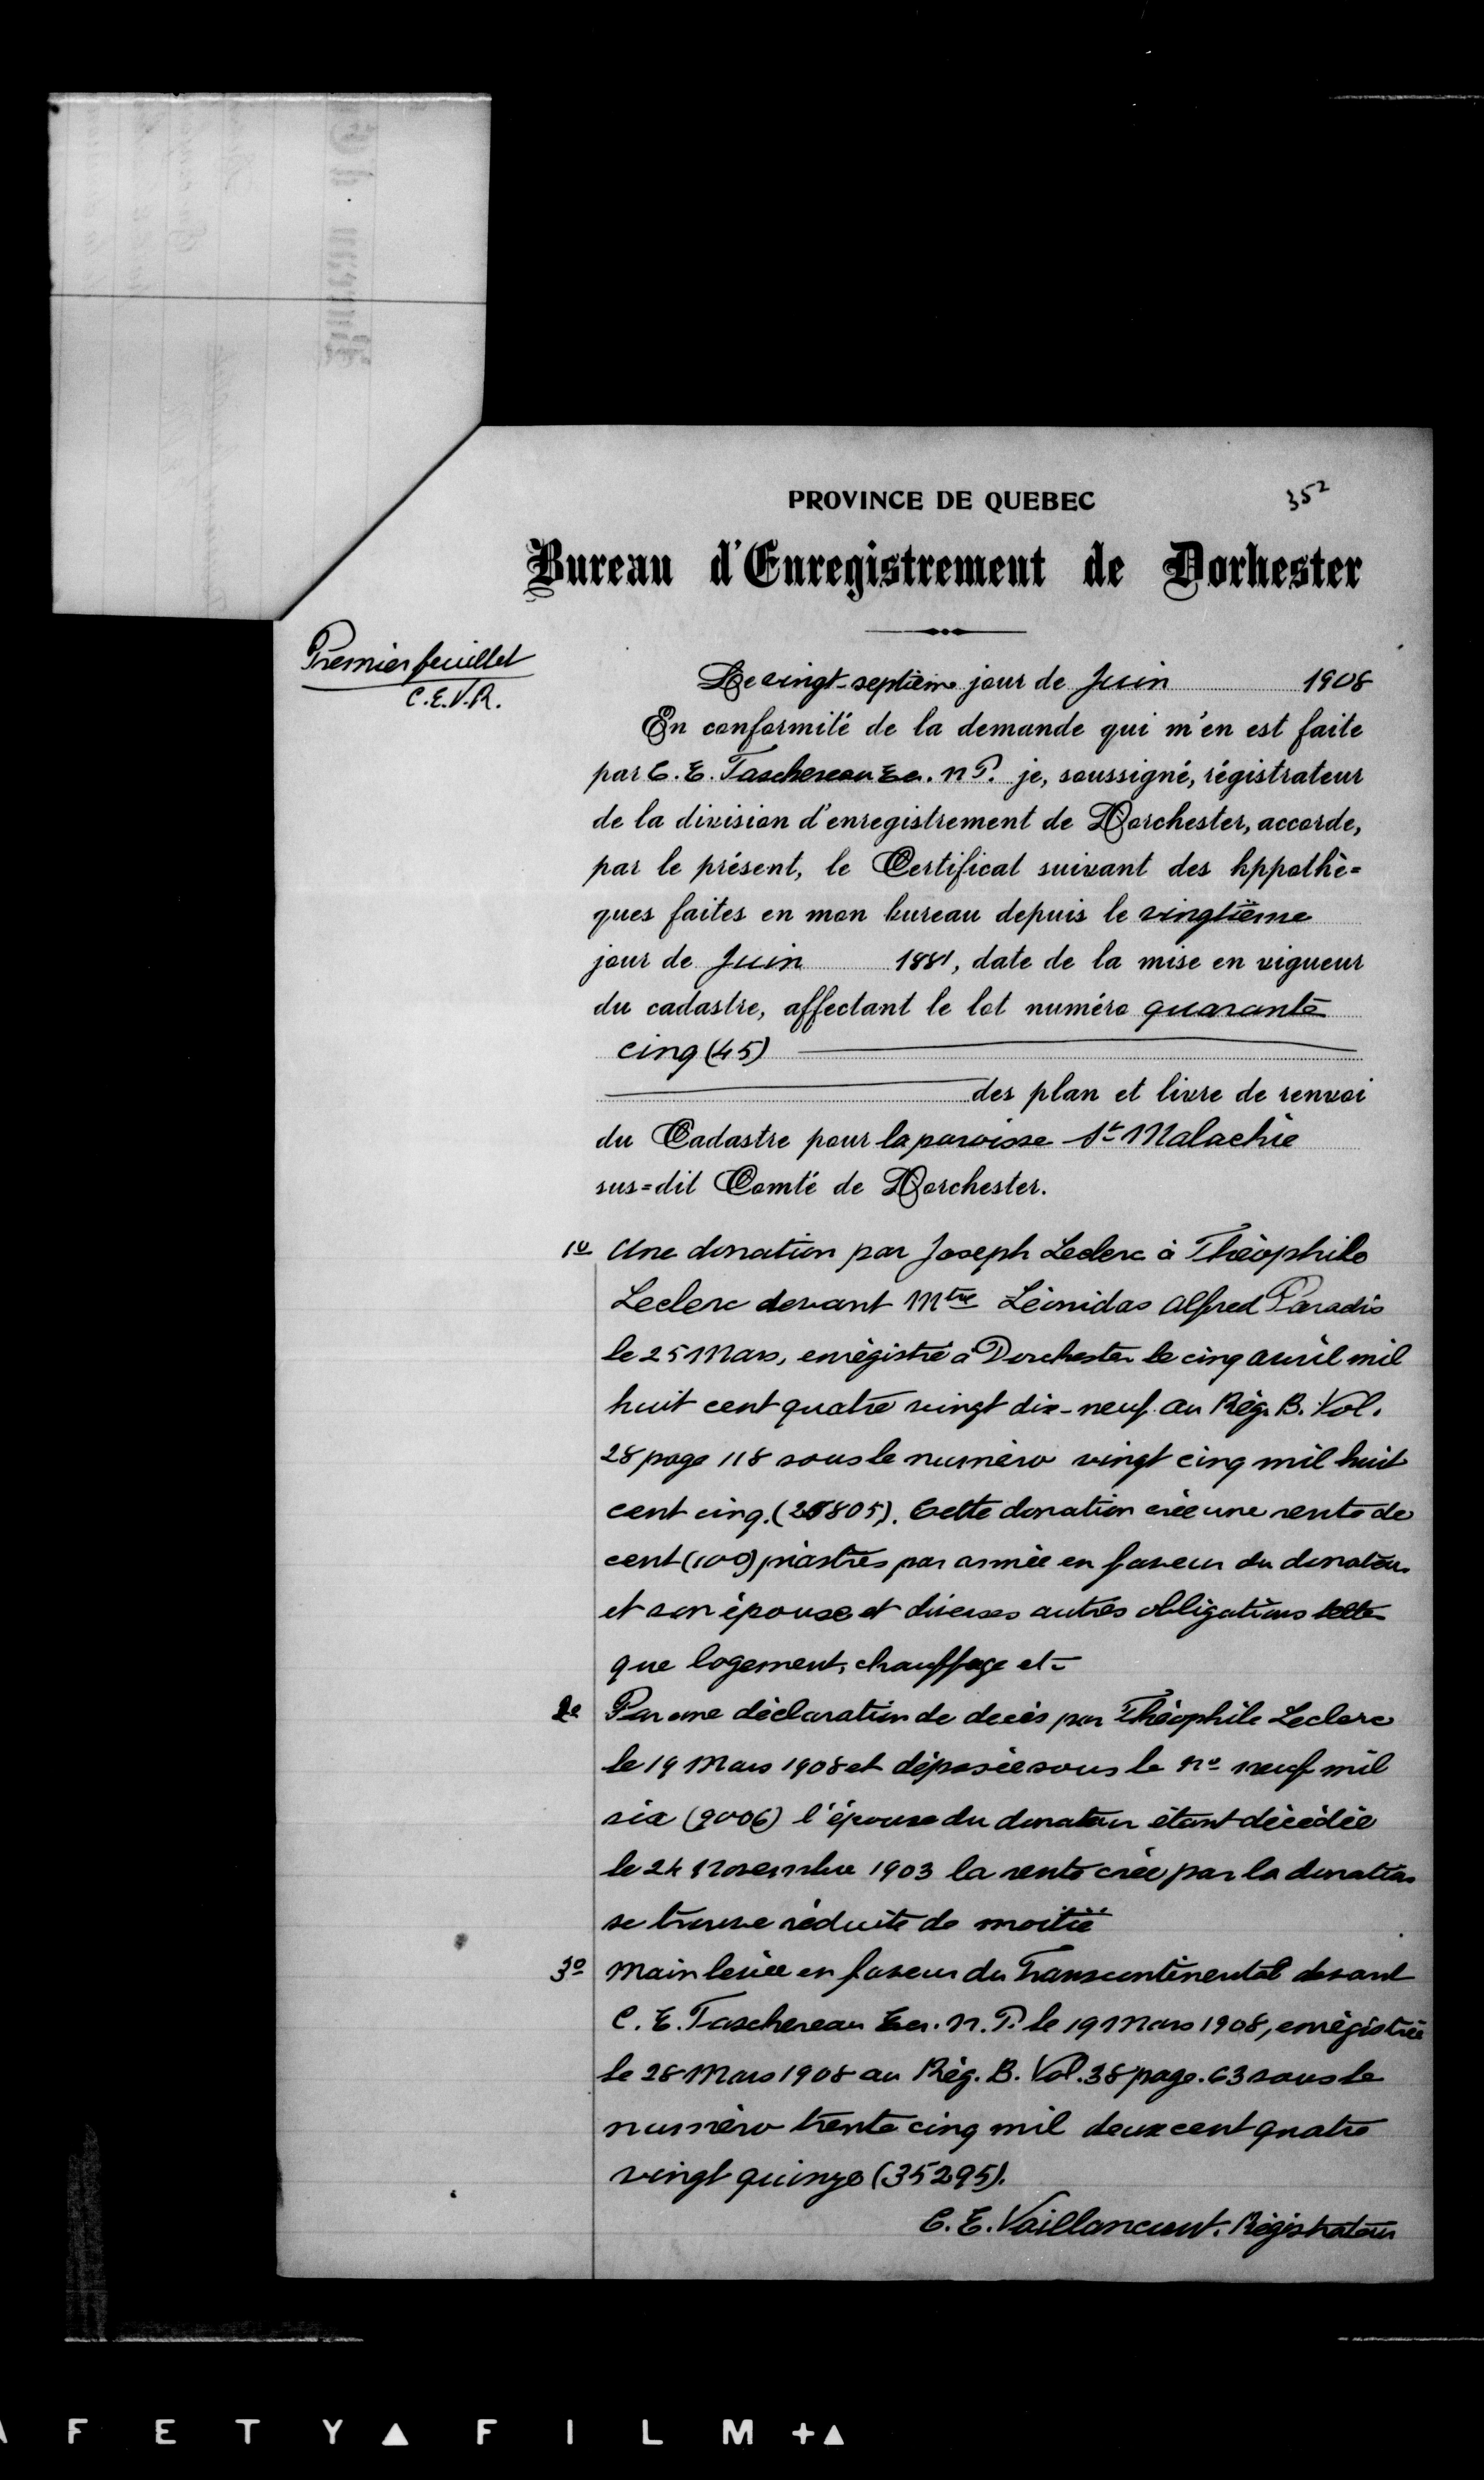 PROVINCE DE QUEBEC
352
Bureau d'Enregistrement de Dorhester
Premier feuillet
C.E.V.R.
Le vingt-septième jour de Juin 1908
En conformité de la demande qui m'en est faite
par C. E. Taschereau Ecr. N.P. je, soussigné, régistrateur
de la division d'enregistrement de Dorchester, accorde,
par le présent, le Certificat suivant des hppothè=
ques faites en mon bureau depuis le vingtième
jour de Juin 1881, date de la mise en vigueur
du cadastre, affectant le lot numéro quarante
cinq (45)
des plan et livre de renvoi
du Cadastre pour la paroisse St Malachie
sus=dit Comté de Dorchester.
1o Une donation par Joseph Leclerc à Théophile
Leclerc devant Mtre Léonidas Alfred Paradis
le 25 Mars, enrégistré à Dorchester le cinq avril mil
huit cent quatre vingt dix-neuf au Rég. B. Vol.
28 page 118 sous le numéro vingt cinq mil huit
cent cinq. (25805). Cette donation crée une rente de
cent (100) piastres par année en faveur du donateur
et son épouse et diverses autres obligations telle
que logement, chauffage etc
2o Par une déclaration de decès par Théophile Leclerc
le 19 Mars 1908 et déposée sous le No neuf mil
six (9006) l'épouse du donateur étant décédée
le 24 Novembre 1903 la rente crée par la donation
se trouve réduite de moitié
3o Main levée en faveur du Transcontinental devant
C. E. Taschereau Ecr. N. P. le 19 Mars 1908, enrégistrée
le 28 Mars 1908 au Rég. B. Vol. 38 page. 63 sous le
numéro trente cinq mil deux cent quatre
vingt quinze (35295).
C. E. Vaillancourt. Régistrateur
FETY▲FILM+▲